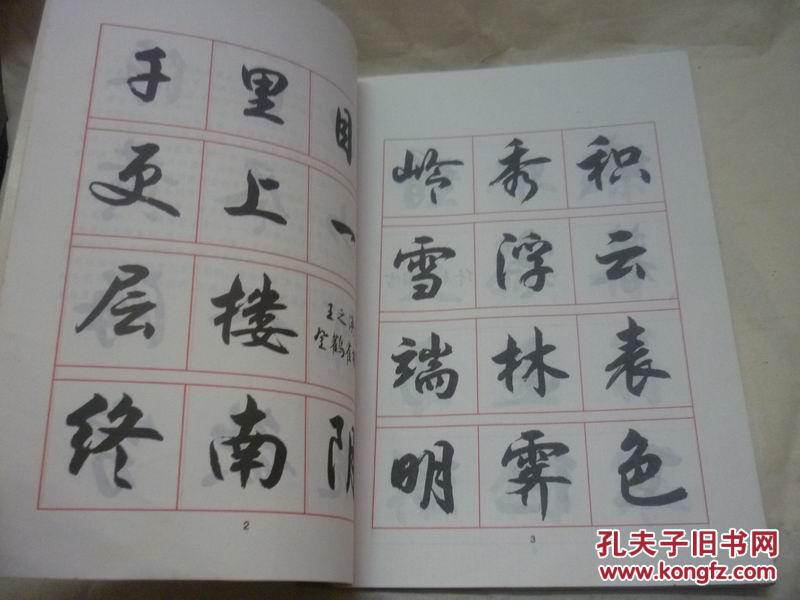 千里目
更上一
层楼
王之涣
登鹳雀
终南阴
2
岭秀积
雪浮云
端林表
明霁色
3
孔夫子旧书网
www.kongfz.com